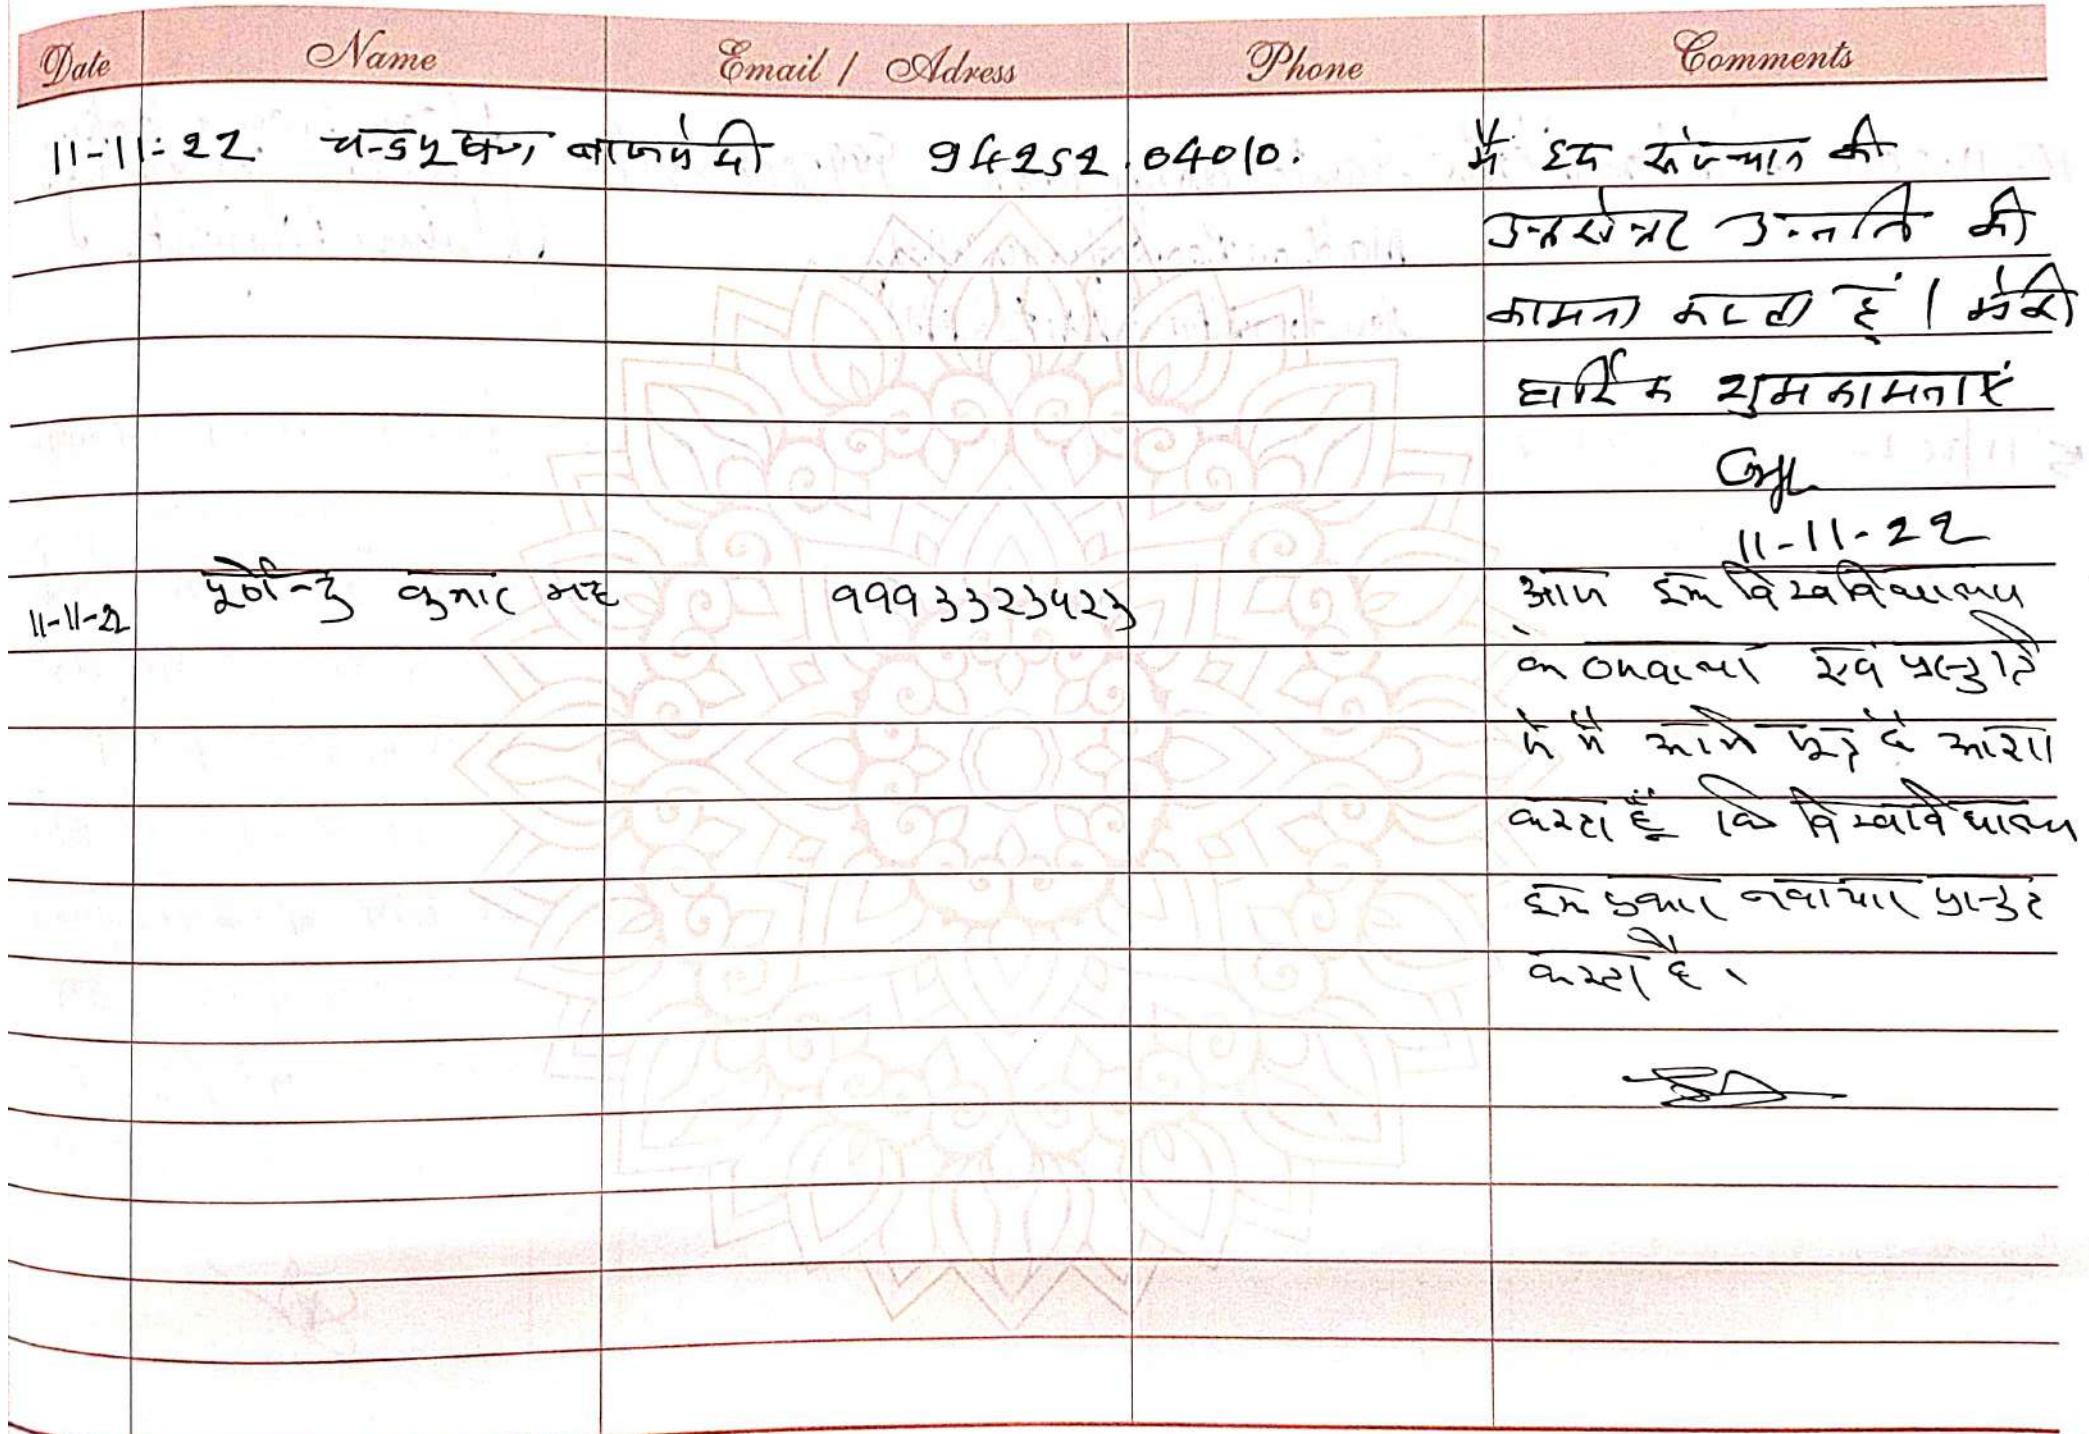 Date Name Email / Adress Phone Comments
11-11-22 चन्द्रभूषण बाजपेयी 94252.04010. मैं इस संस्थान की
उत्तरोत्तर उन्नति की
कामना करता हूं । मेरी
हार्दिक शुभकामनाएं
11-11-22
11-11-22 पूर्णेन्दु कुमार भट्ट 9993323423 आज इस विश्वविद्यालय
के एवं
में मैं आशा
करता हूँ कि विश्वविद्यालय
इस प्रकार नवाचार
करता है ।